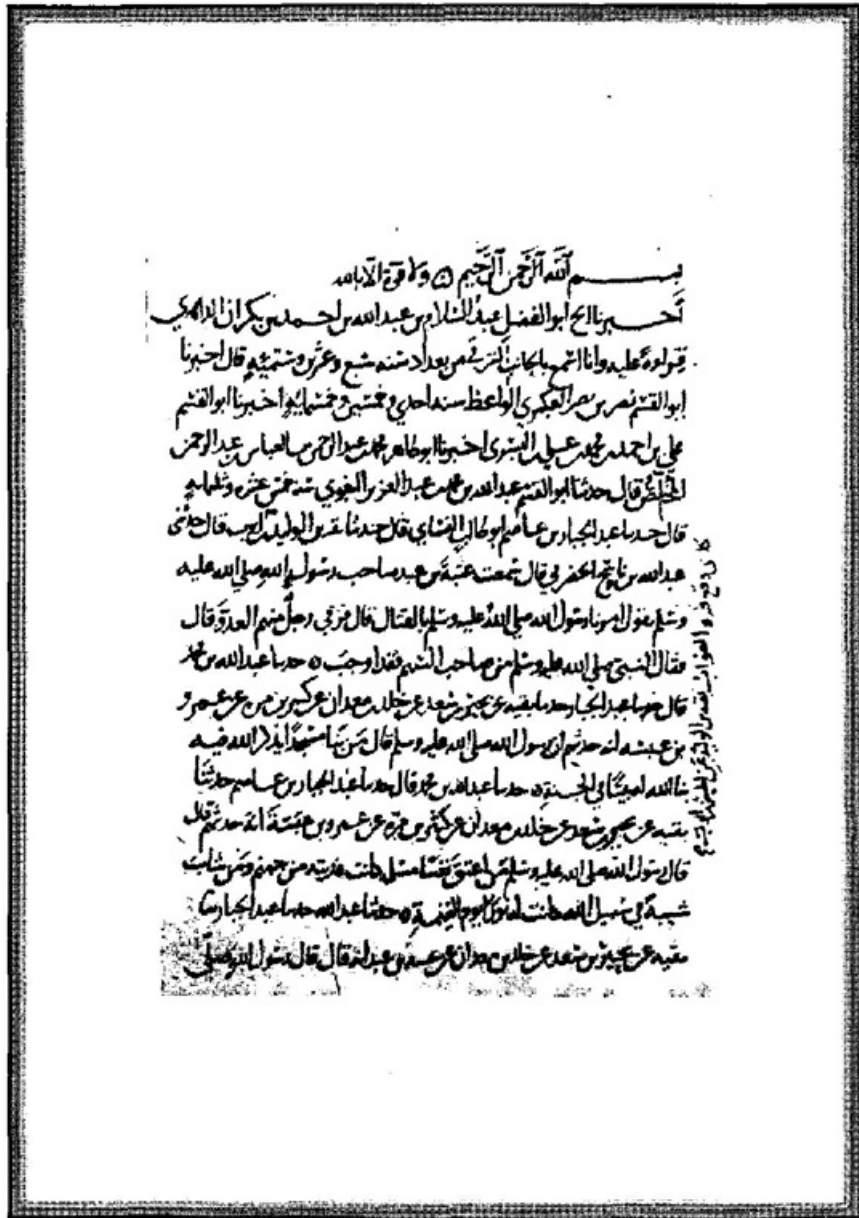 بسم الله الرحمن الرحيم ولا قوة الا بالله
اخبرنا الشيخ ابو الفضل عبد السلام بن عبد الله بن احمد بن بكران الداهري
قراءة عليه وانا اسمع بالجانب الشرقي من بغداد سنه سبع وعشرين وستمئة قال اخبرنا
ابو القسم نصر بن نصر العكبري الواعظ سنه احدي وخمسين وخمسمايه اخبرنا ابو القسم
علي بن احمد بن محمد بن علي بن البسري اخبرنا ابو طاهر محمد بن عبد الرحمن بن العباس بن عبد الرحمن
المخلص قال حدثنا ابو القسم عبد الله بن محمد بن عبد العزيز البغوي سنه خمس عشره وثلثمايه
قال حدثنا عبد الجبار بن عاصم ابو طالب النسائي قال حدثنا بقيه بن الوليد قال حدثني
عبد الله بن ناسح الحضرمي قال سمعت عتبة بن عبد صاحب رسول الله صلي الله عليه
وسلم يقول امرنا رسول الله صلي الله عليه وسلم بالقتال قال فرمي رجل منهم العدو قال
فقال النبي صلي الله عليه وسلم من صاحب السهم فقد اوجب حدثنا عبد الله بن محمد
قال حدثنا عبد الجبار حدثنا بقيه عن بحير بن سعد عن خلد بن معدان عن كثير بن مره عن عمرو
بن عبسه انه حدثهم ان رسول الله صلي الله عليه وسلم قال من بنا مسجدا يذكر الله فيه
بنا الله له بيتا في الجنة حدثنا عبد الله بن محمد قال حدثنا عبد الجبار بن عاصم حدثنا
بقيه عن بحير بن سعد عن خلد بن معدان عن كثير بن مره عن عمرو بن عبسة انه حدثهم قال
قال رسول الله صلي الله عليه وسلم من اعتق نفسا مسلمه كانت فديته من جهنم ومن شاب
شيبة في سبيل الله كانت له نورا يوم القيمة حدثنا عبد الله حدثنا عبد الجبار حدثنا
بقيه عن بحير بن سعد عن خلد بن معدان عن عتبة بن عبد انه قال قال رسول الله صلي